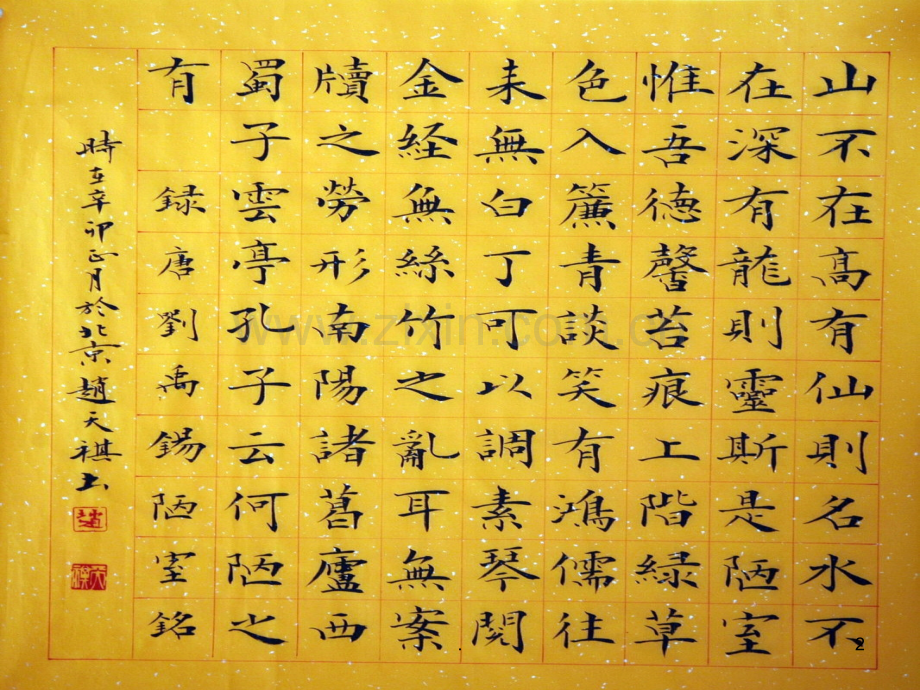 山不在高有仙則名水不
在深有龍則靈斯是陋室
惟吾德馨苔痕上階緑草
色入簾青談笑有鴻儒往
来無白丁可以調素琴閱
金経無絲竹之亂耳無案
牘之勞形南陽諸葛廬西
蜀子雲亭孔子云何陋之
有 録唐劉禹錫陋室銘
時在辛卯正月於北京趙天祺书
趙
天祺
www.zixin.com.cn
2